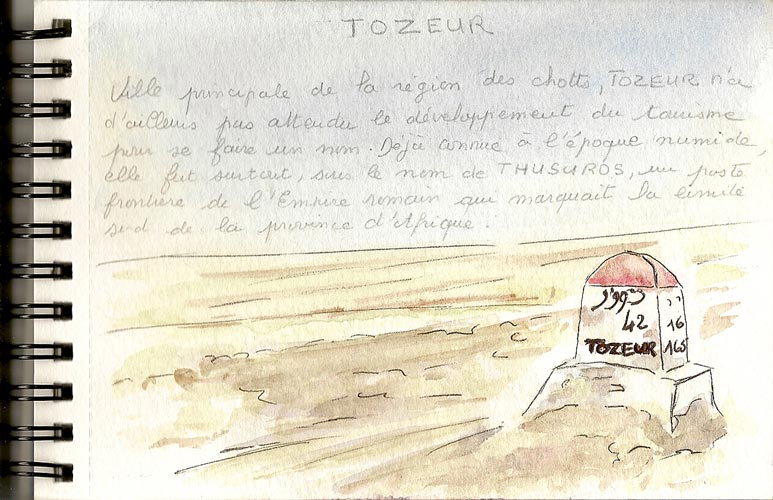 TOZEUR
Ville principale de la région des chotts, TOZEUR n'a
d'ailleurs pas attendu le développement du tourisme
pour se faire un nom. Déjà connue à l'époque numide,
elle fut surtout, sous le nom de THUSUROS, un poste
frontière de l'Empire romain qui marquait la limite
sud de la province d'Afrique.
42
TOZEUR
16
165